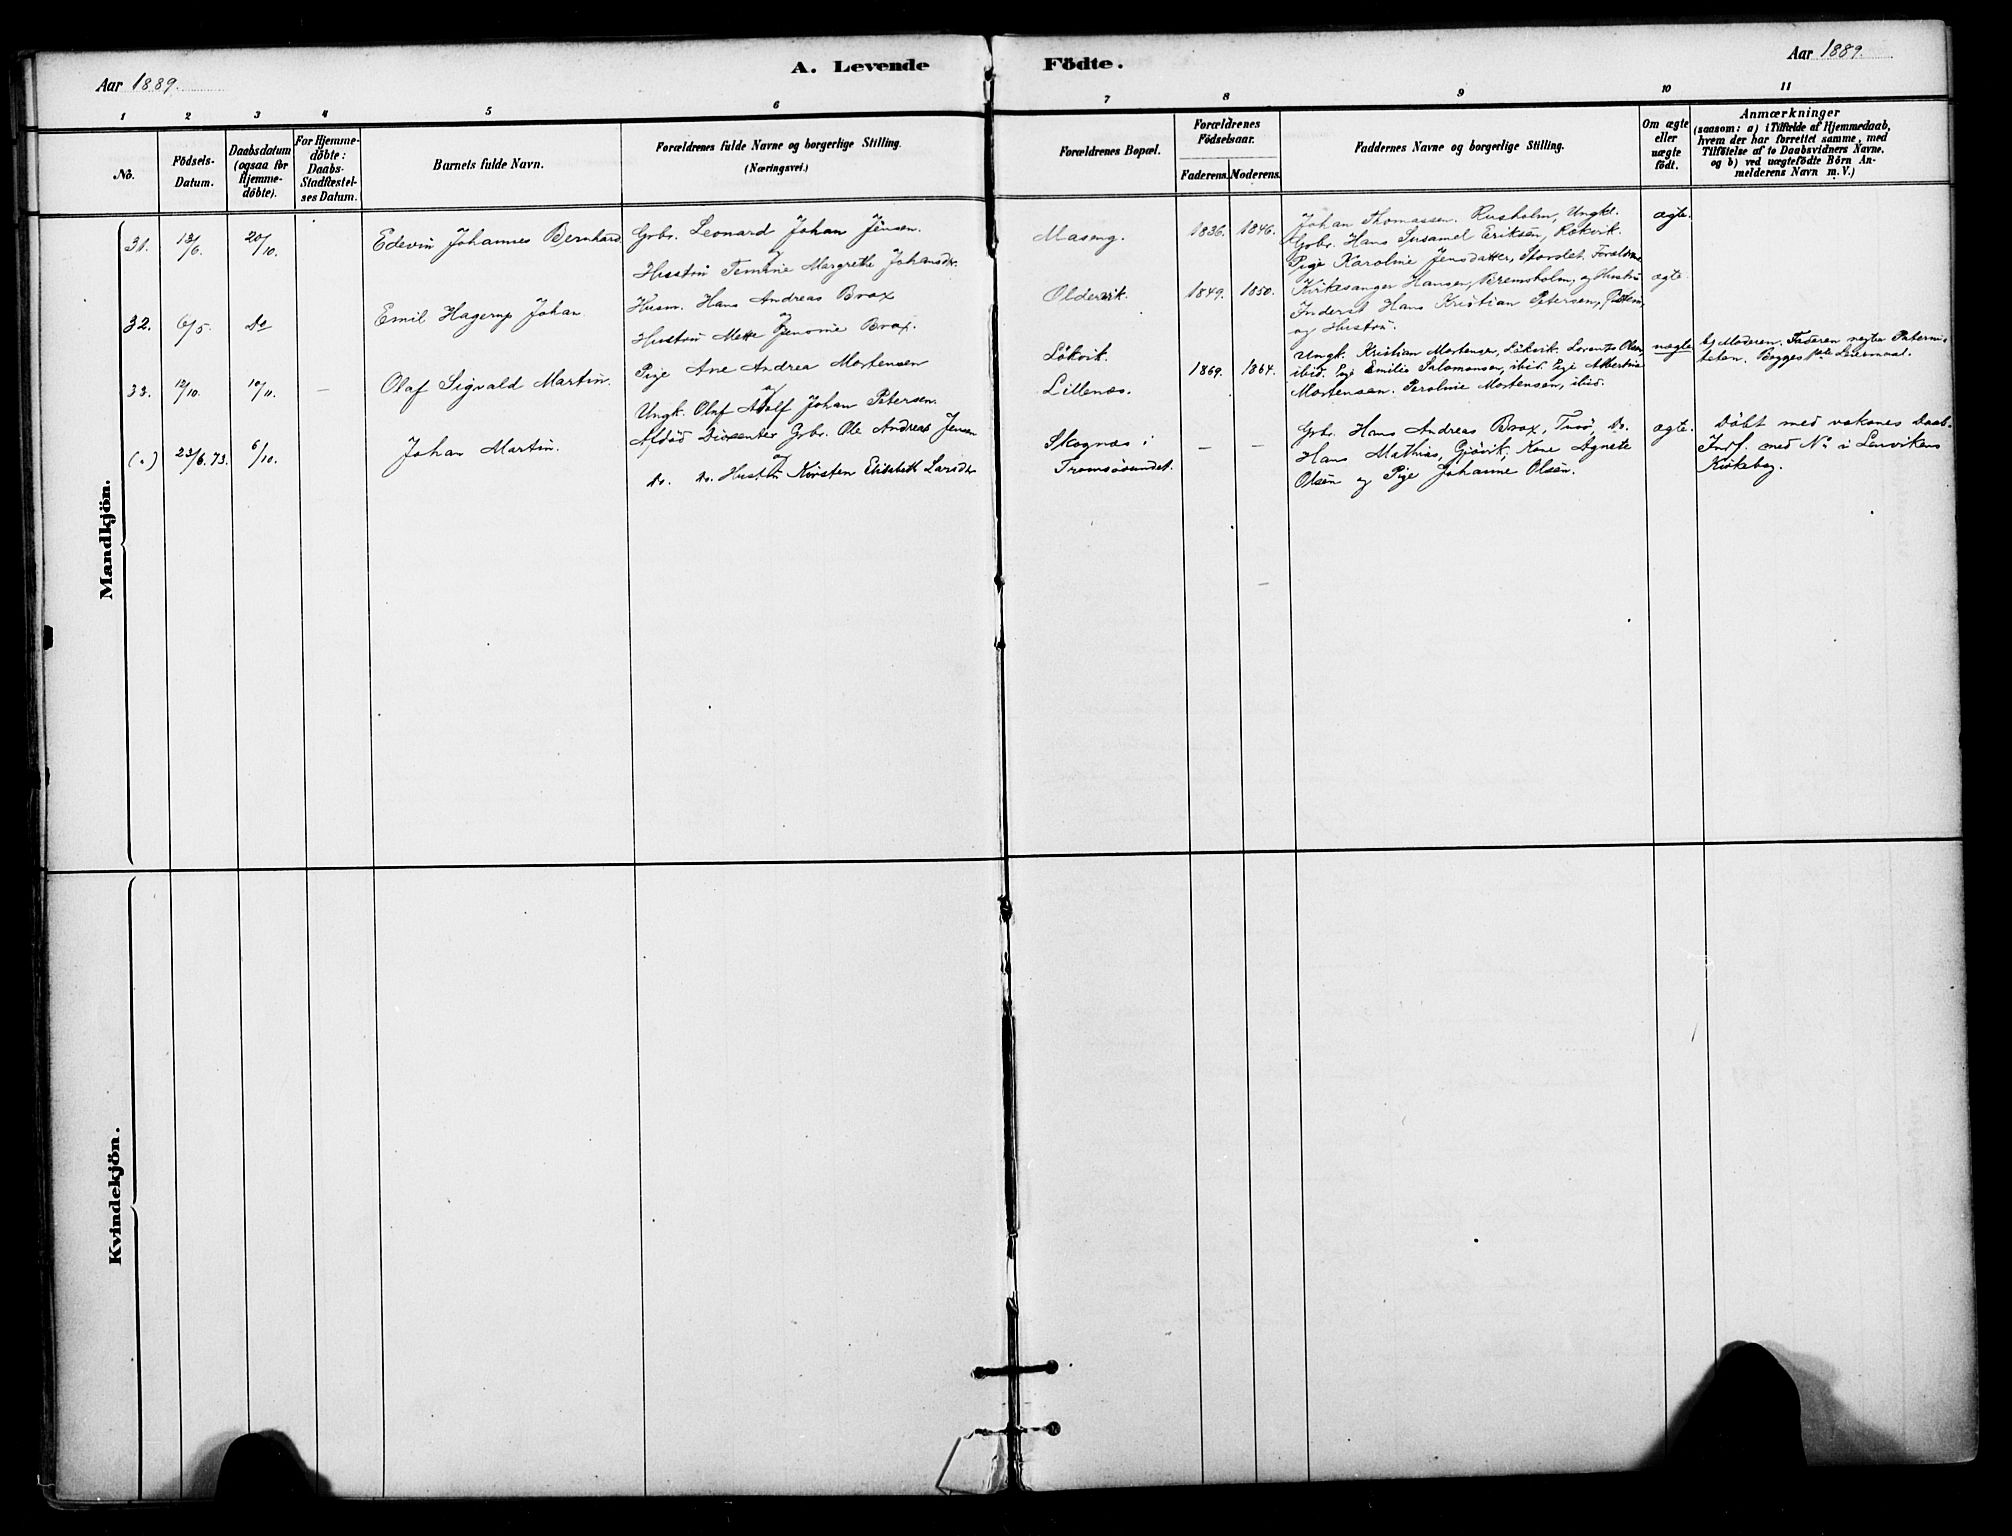 Aar 1889.
A. Levende Födte.
Aar 1889.
1 2 3 4 5 6 7 8 9 10 11
No.
Födsels-
Datum.
Daabsdatum
(ogsaa for
Hjemme-
döbte).
For Hjemme-
döbte:
Daabs-
Stadfæstel-
ses Datum.
Barnets fulde Navn.
Forældrenes fulde Navne og borgerlige Stilling.
(Næringsvei.)
Forældrenes Bopæl.
Forældrenes
Födselsaar.
Faderens. Moderens.
Faddernes Navne og borgerlige Stilling.
Om ægte
eller
uægte
födt.
Anmærkninger
(saasom: a) i Tilfælde af Hjemmedaab,
hvem der har forrettet samme, med
Tilföielse af to Daabsvidners Navne,
og b) ved uægtefödte Börn An-
melderens Navn m. V.)
Mandkjön.
31. 13/6. 20/10. Edevin Johannes Bernhard
Gbr. Leonard Johan Jensen.
og
Hustru Margrethe Johansdtr.
Maseng. 1836. 1846.
Johan Thomassen. Rusholm, Ungk.
Gbr. Hans Eriksen, Rækvik.
Pige Karoline Jensdatter, Stordlet.
ægte.
32. 6/5. Do Emil Hagerup Johan
Husm. Hans Andreas Brox
og
Hustru Mette Brox.
Oldervik. 1849. 1850.
Kirkesanger Hansen, Bremsholm, og Hustru
Inderst Hans Kristian Petersen,
og Hustru.
ægte
33. 12/10. 10/11. — Olaf Sigvald Martin.
Pige Ane Andrea Mortensen
og
Ungk. Olaf Adolf Johan Petersen.
Lökvik.
Lillenæs.
1869. 1864.
Ungk. Kristian Mortensen, Lökvik. Lorentz Olsen,
ibid. Pige Emilie Salomonsen, ibid. Pige Albertine
Mortensen. Peroline Mortensen, ibid.
uægte
b) Moderen. Faderen negter Paterni-
teten. Begges 1ste Leiermaal.
(.) 23/6.73. 6/10. Johan Martin.
Afdöd Dissenter Gbr. Ole Andreas Jensen
og
Do. Do. Hustru Kirsten Elisabeth Larsdtr
Skognæs i
Tromsösundet.
— —
Gbr. Hans Andreas Brox, Tusö, Do.
Hans Mathias, Gjövik, Kone Agnete
Olsen og Pige Johanne Olsen.
ægte.
Döbt med voksnes Daab.
Indf. med No i Lenvikens
Kirkebog.
Kvindekjön.